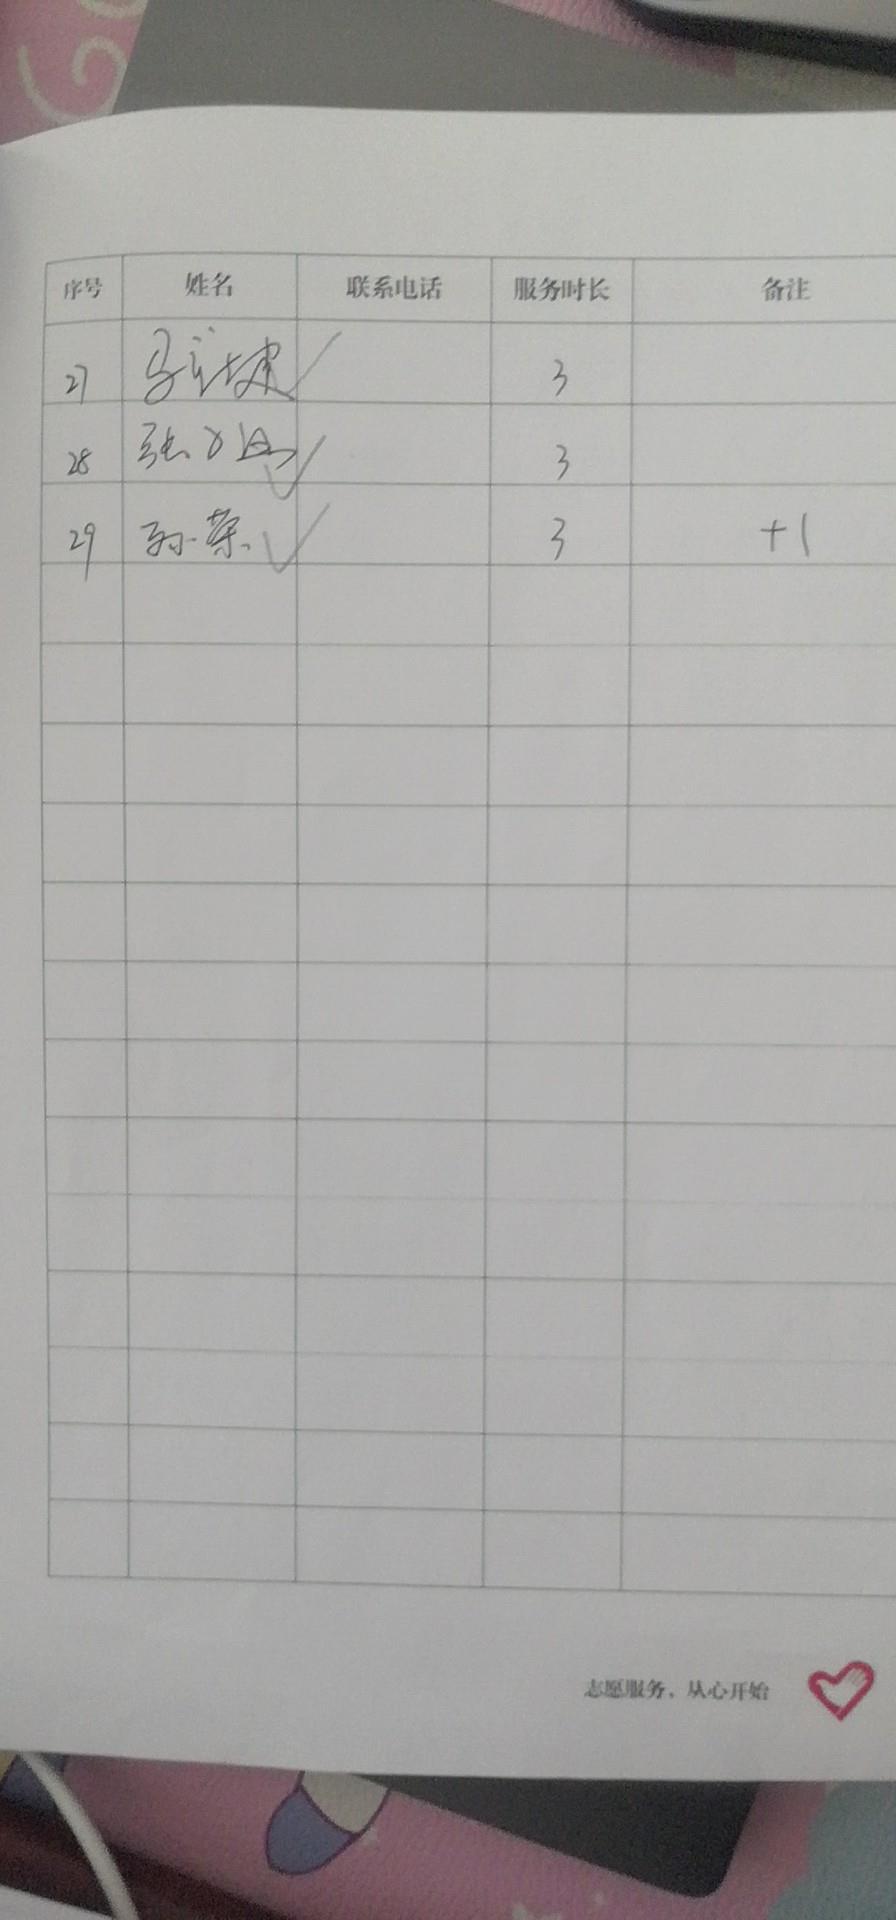 序号 姓名 联系电话 服务时长 备注
27 马 3
28 张 3
29 孙荣 3 +1
志愿服务,从心开始